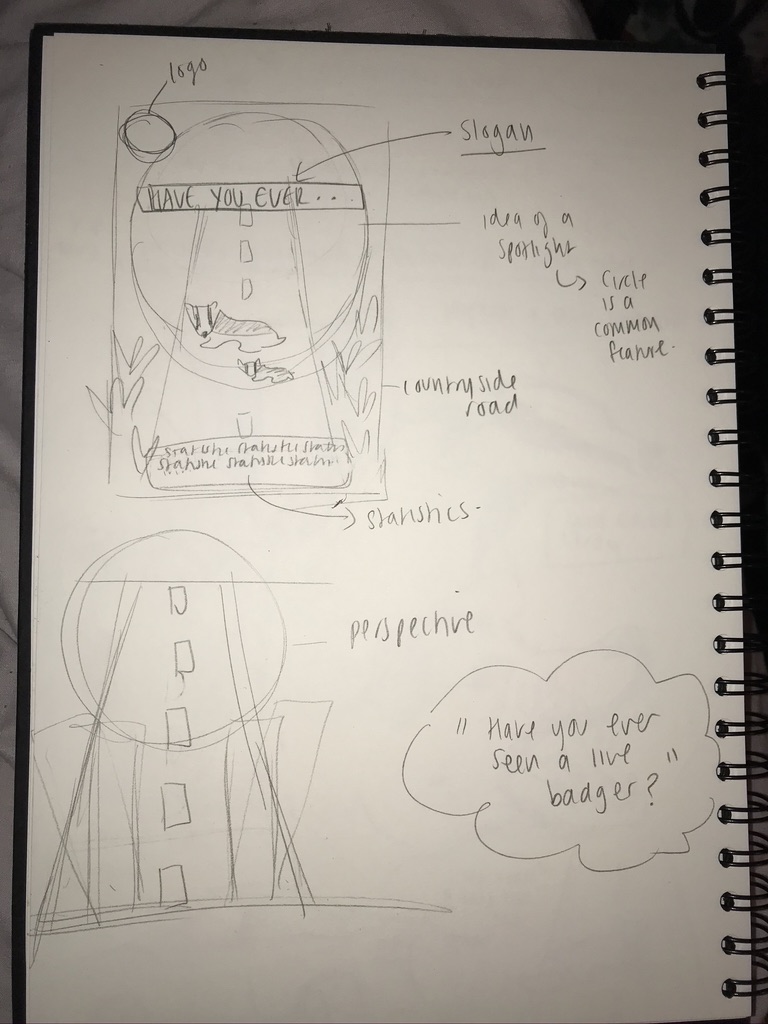 logo
slogan
HAVE YOU EVER...
idea of a
spotlight
Circle
is a
common
feature.
countryside
road
statistic statistic statis
statistic statistic statis...
statistics.
perspective
" Have you ever
seen a live "
badger?